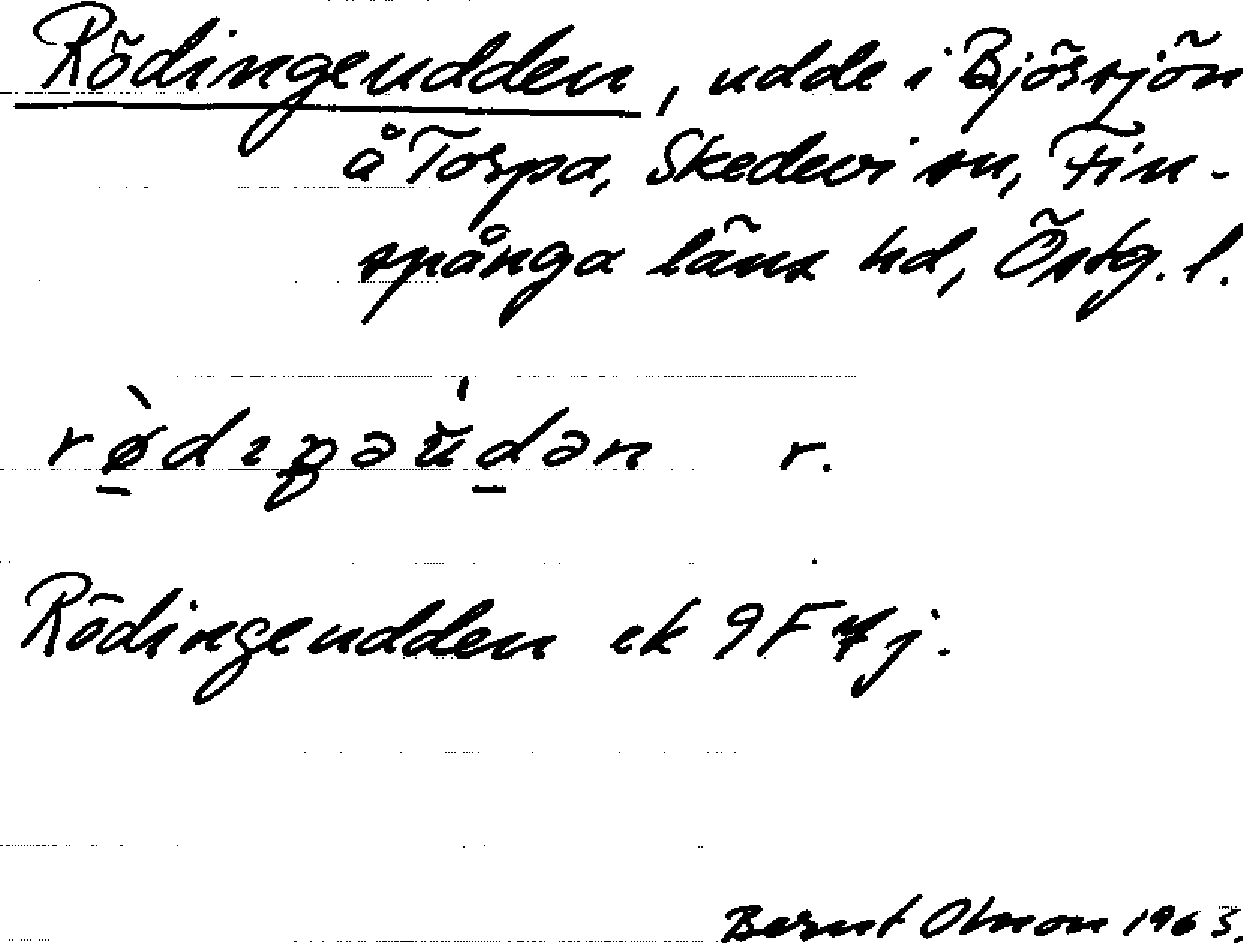 Rödingeudden, udde i Björsjön
å Torpa, Skedevi sn, Fin-
spånga läns hd, Östg. l.
rø̀dıŋəu̍dən r.
Rödingeudden ek 9F4j.
Bernt Olsson 1963.